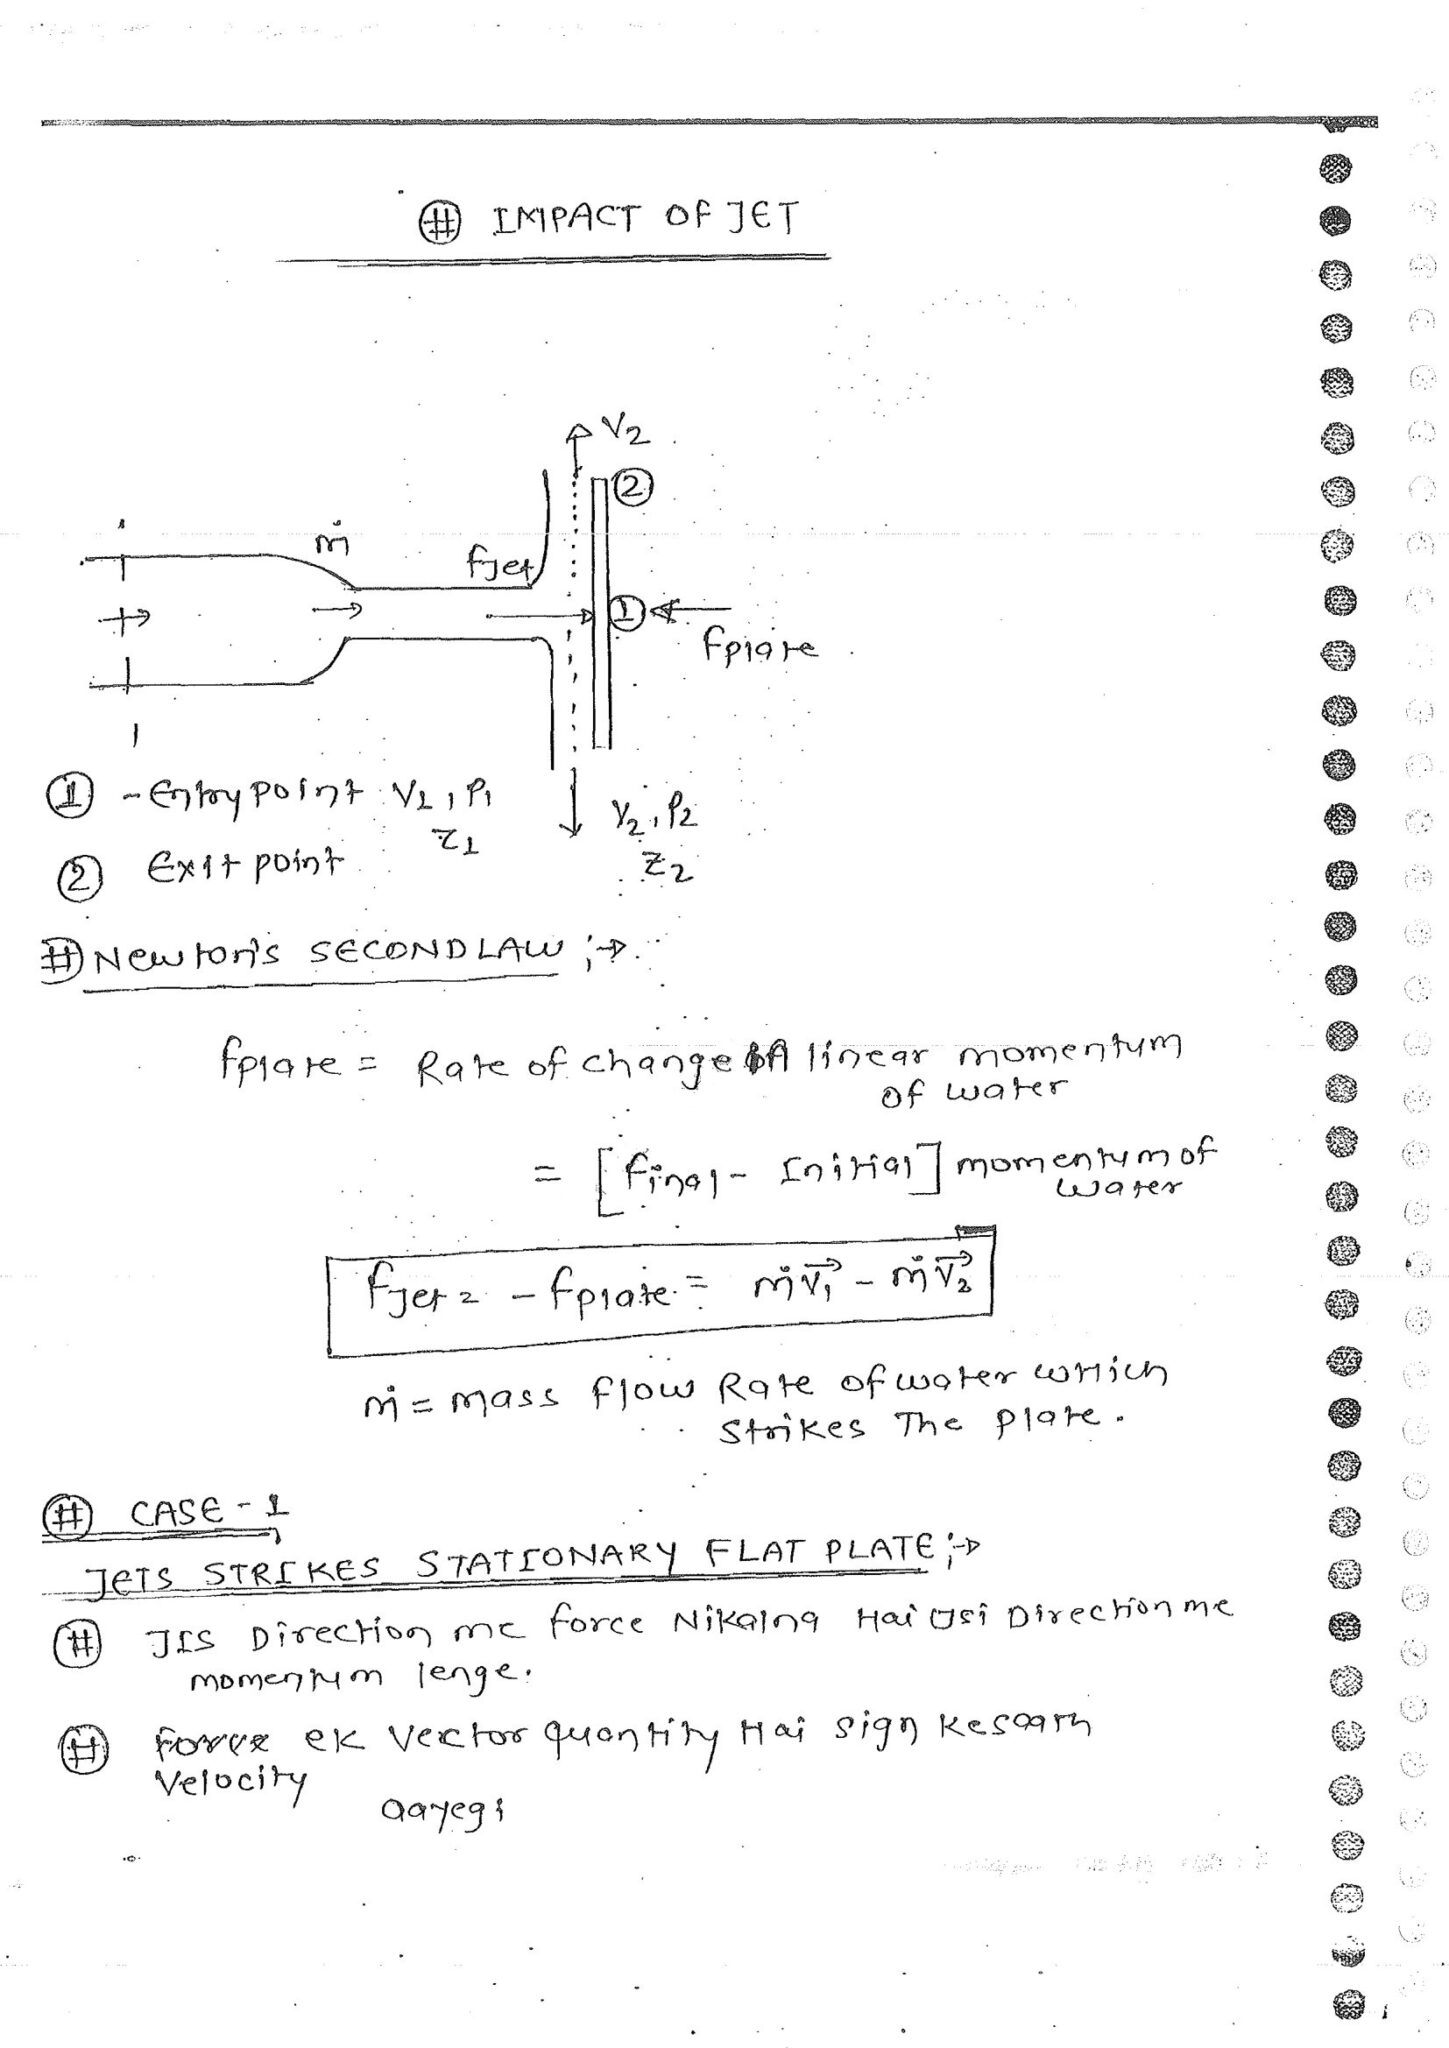 # IMPACT OF JET
V2
2
ṁ
fjet
1
fplate
1 - Entry point V1, P1
Z1
V2, P2
Z2
2 Exit point
# Newton's SECOND LAW ;→
fplate = Rate of change of linear momentum
of water
= [final - Initial] momentum of
water
fjet = - fplate = ṁV⃗1 - ṁV⃗2
ṁ = mass flow Rate of water which
strikes The plate.
# CASE - 1
JETS STRIKES STATIONARY FLAT PLATE ;→
# JIS Direction me force Nikalna Hai Usi Direction me
momentum lenge.
# Force ek Vector quantity Hai sign Kesaath
Velocity
aayegi
1